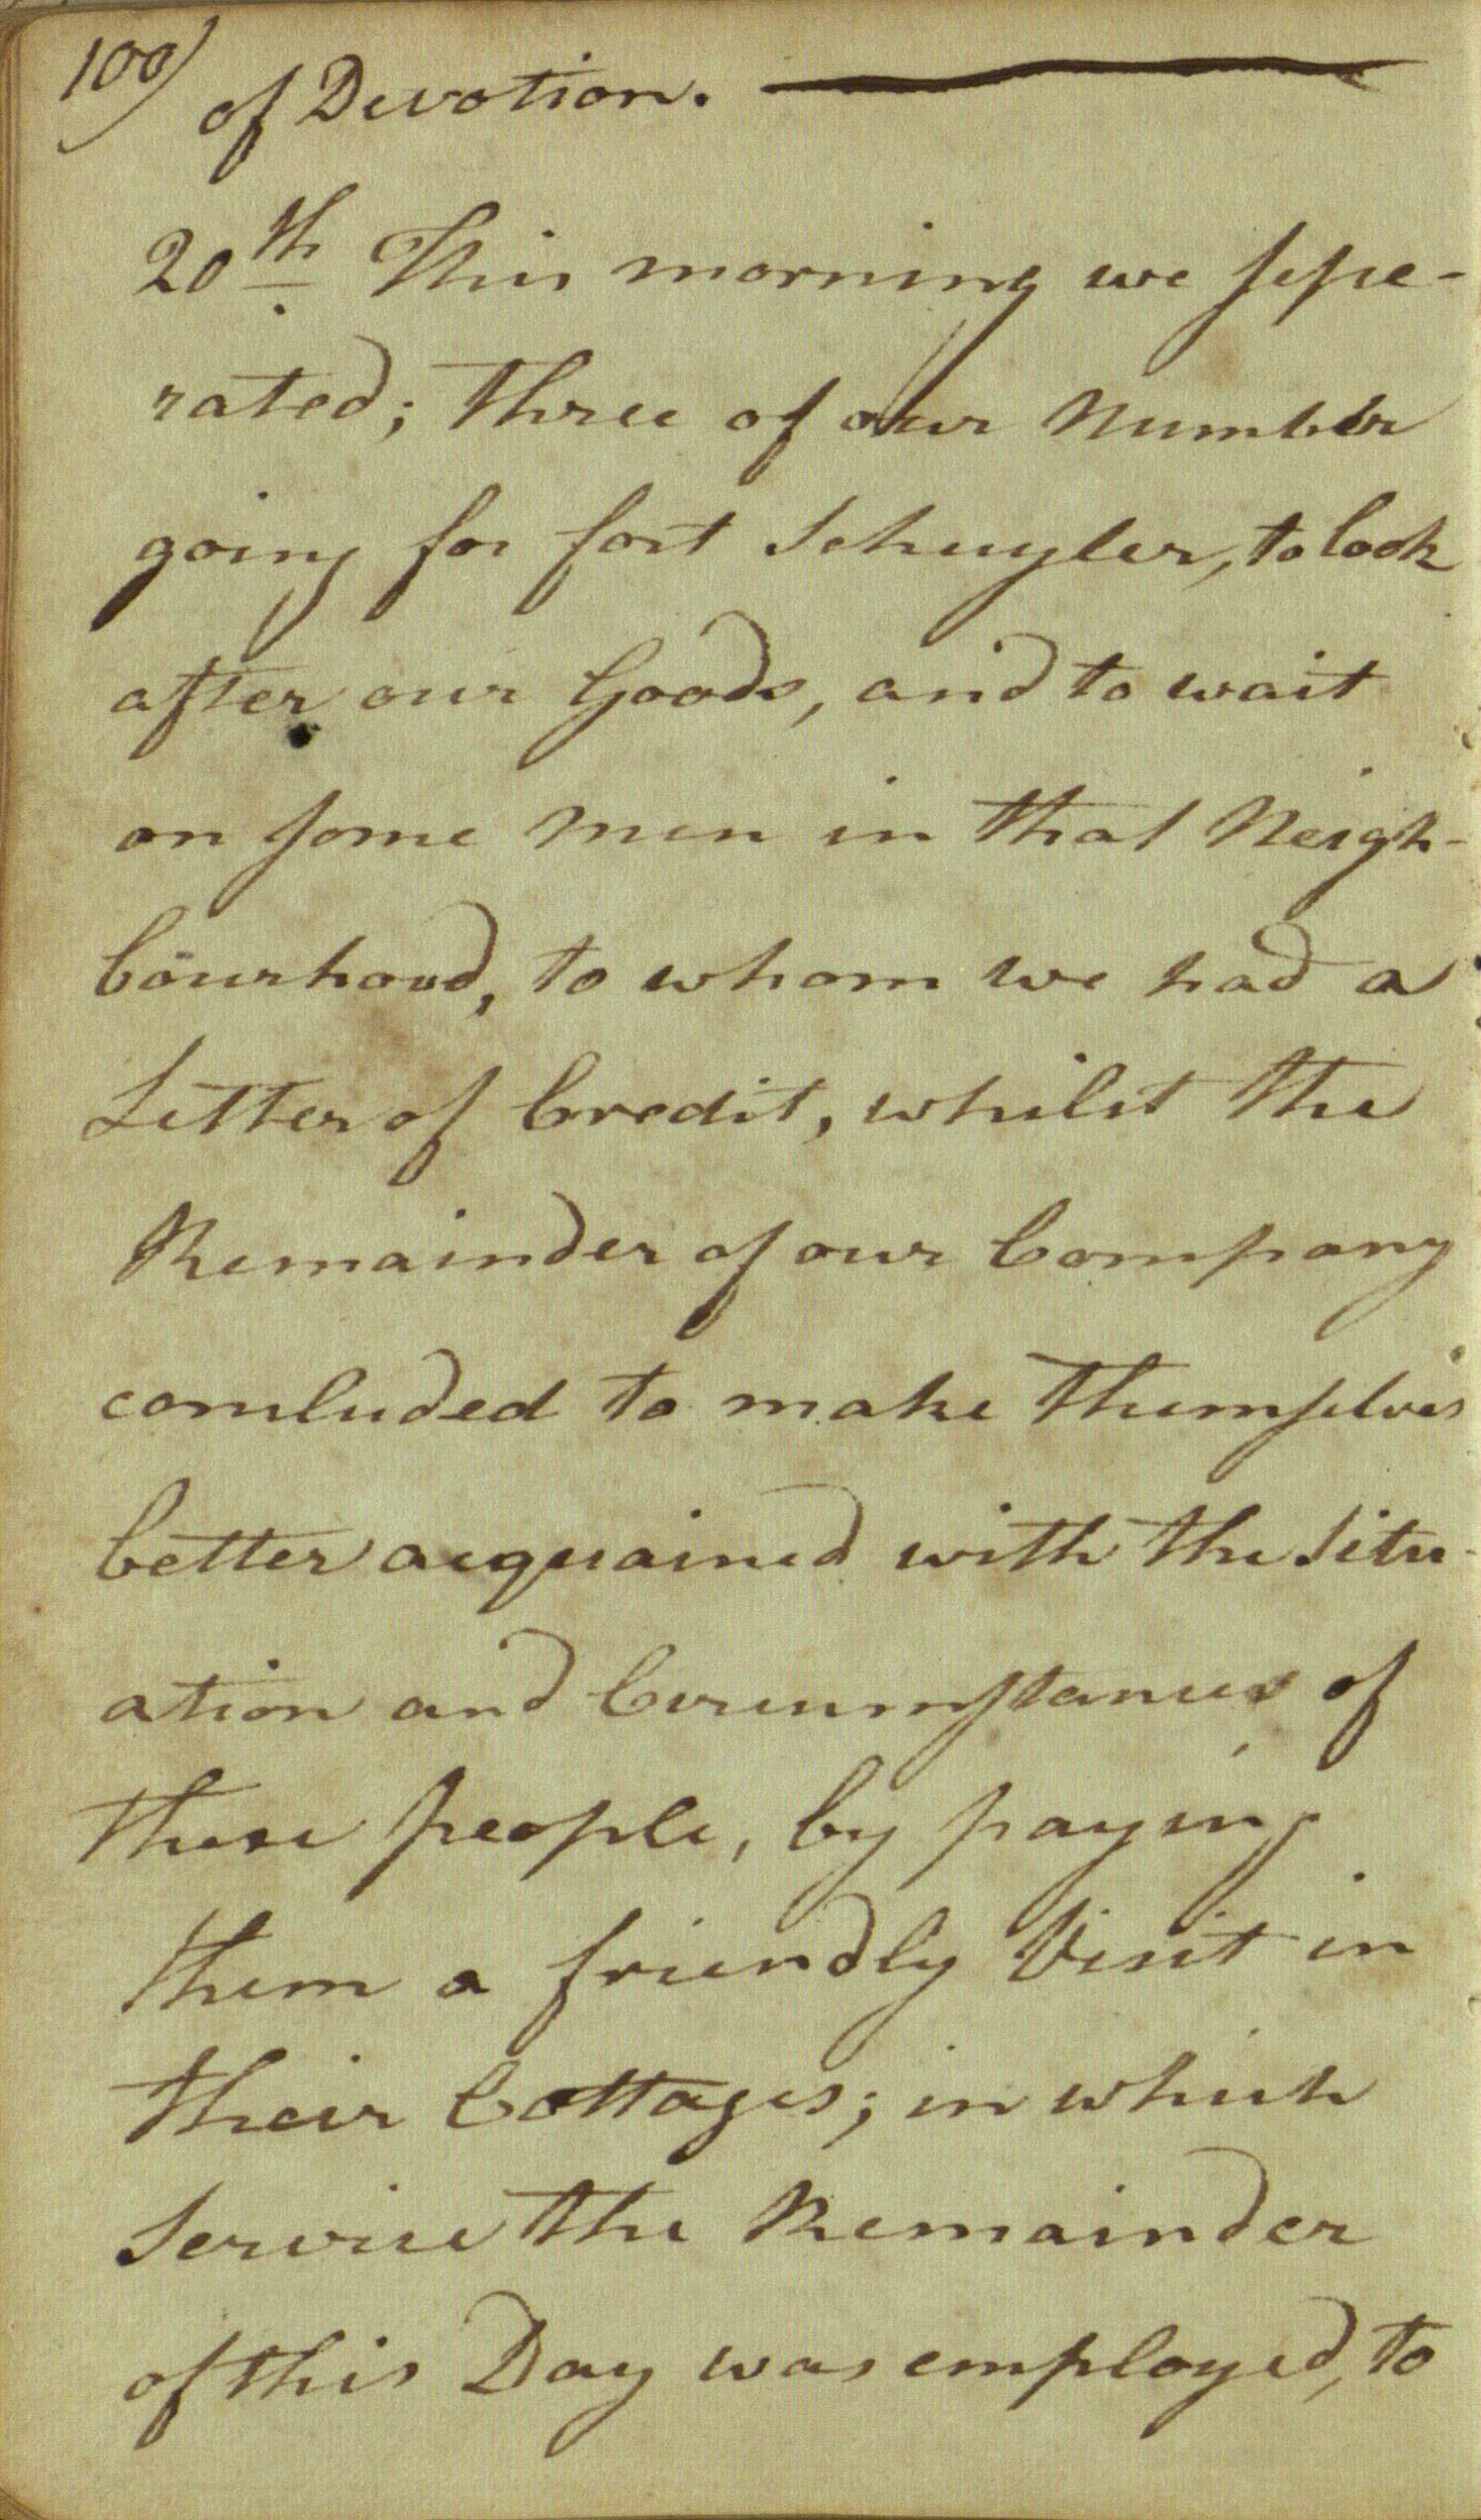 100)
of Devotion. —
20th This morning we sepe-
rated; three of our Number
going for fort Schuyler, to look
after our Goods, and to wait
on some men in that Neigh-
bourhood, to whom we had a
Letter of Credit, whilst the
Remainder of our Company
concluded to make themselves
better acquained with the Situ-
ation and Circumstances of
these people, by paying
them a friendly Visit in
their Cottages; in which
Service the Remainder
of this Day was employed, to